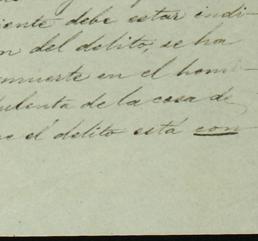 iente debe estar indi-
n del delito, se ha
muerte en el hom-
ulenta de la cosa de
el delito está con